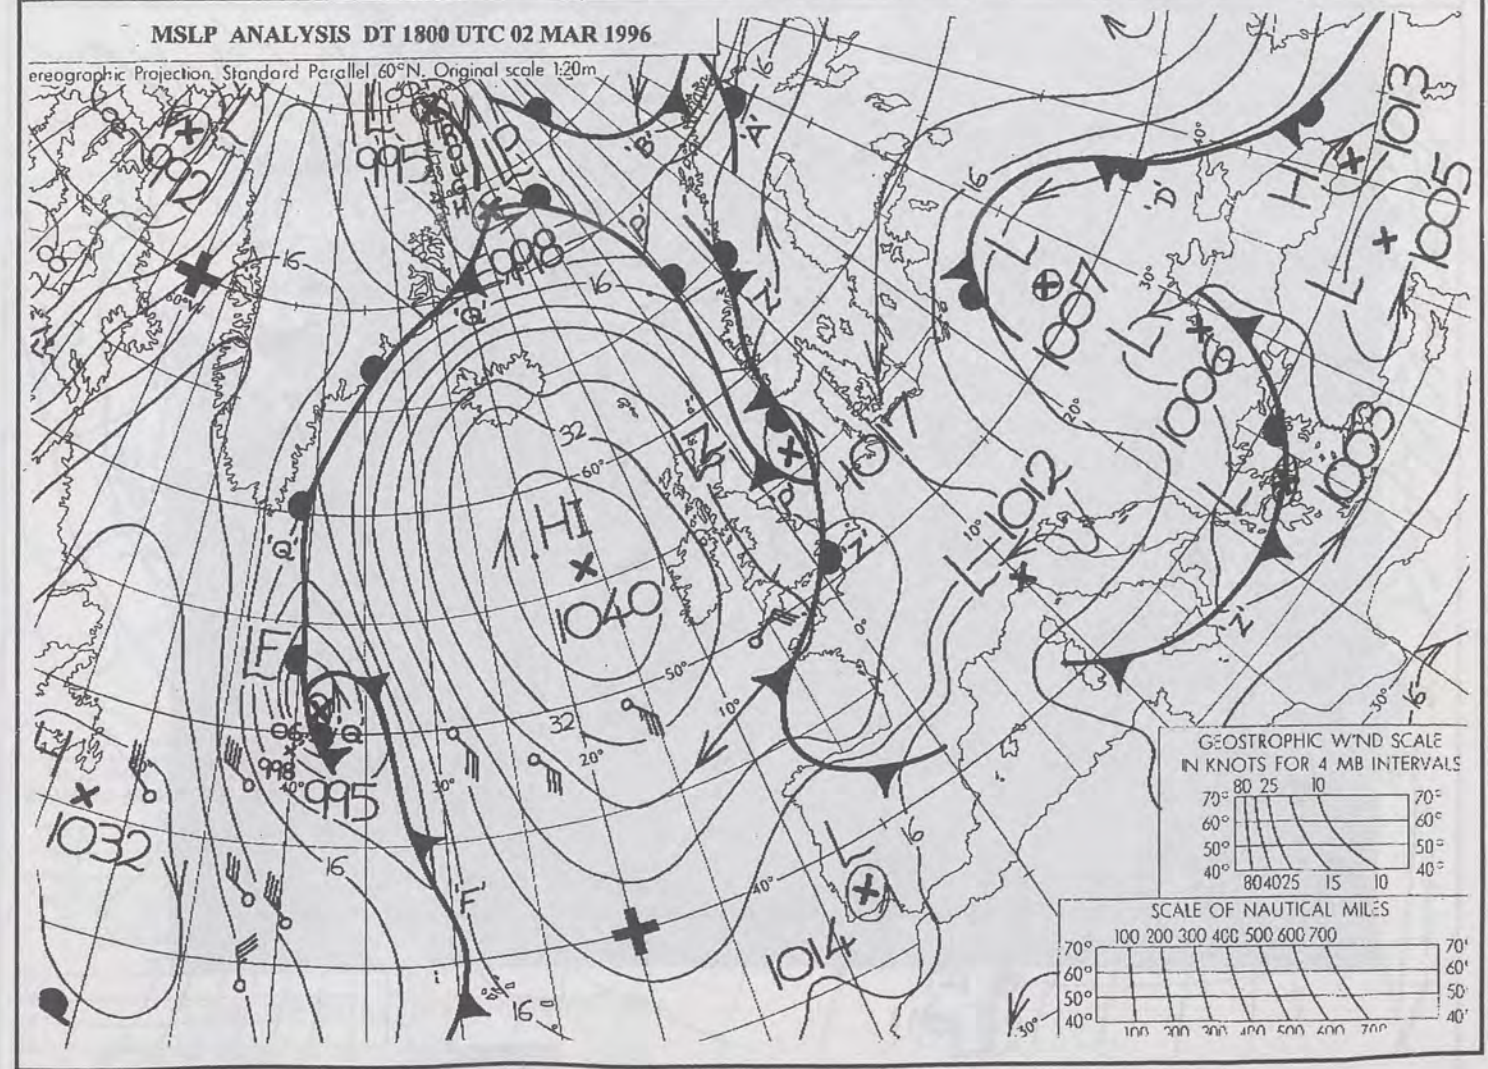 MSLP ANALYSIS DT 1800 UTC 02 MAR 1996
ereographic Projection, Standard Parallel 60°N. Original scale 1:20m
L
992
L
995
L
998
'B'
'A'
'P'
'Z'
16
16
16
16
'D'
40°
H
1013
L
1005
L
1007
30°
L
1006
20°
L
1008
'Q'
32
60°
HI
1040
1017
'P'
'Z'
10°
L
1012
0°
'Z'
'Q'
50°
10°
32
20°
'Q'
998
995
40°
30°
H
1032
16
'F'
16
40°
L
1014
16
30°
16
30°
GEOSTROPHIC WIND SCALE
IN KNOTS FOR 4 MB INTERVALS
80 25 10
70° 70°
60° 60°
50° 50°
40° 40°
80 40 25 15 10
SCALE OF NAUTICAL MILES
100 200 300 400 500 600 700
70° 70°
60° 60°
50° 50
40° 40°
100 200 300 400 500 600 700